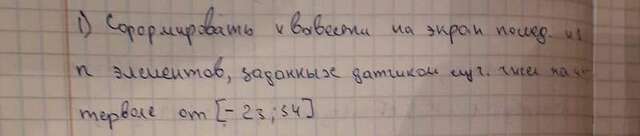 1) Сформировать и вывести на экран послед. из
n элементов, заданных датчиком случ. чисел на ин-
тервале от [-23; 34]